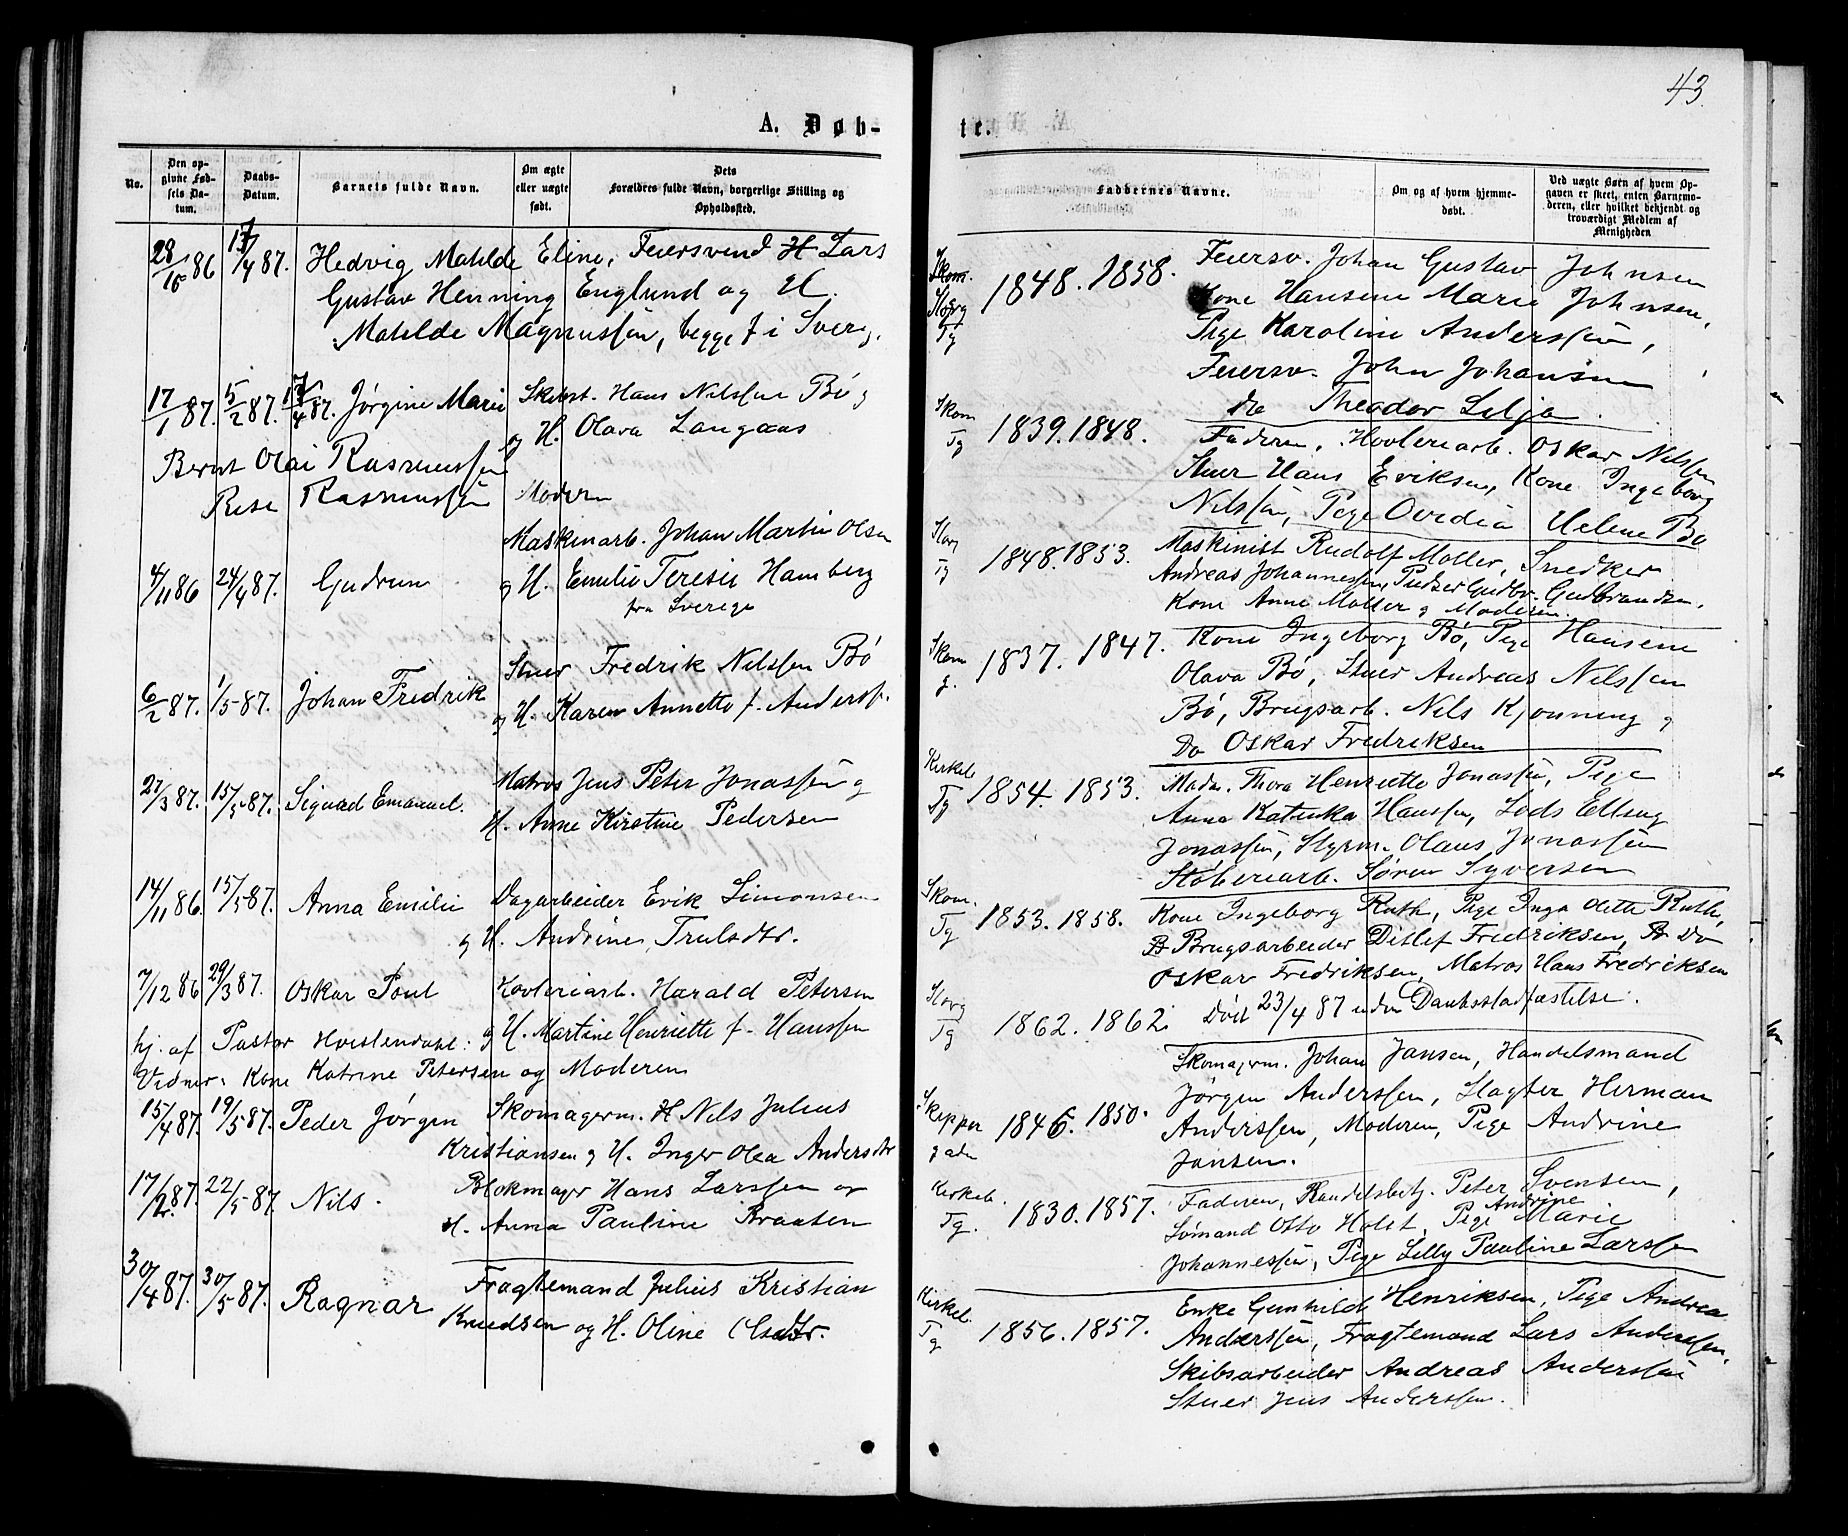 43
A. Døb-
te.
No.
Den opgivne Fødsels Datum.
Daabs-Datum.
Barnets fulde Navn.
Om ægte eller uægte født.
Dets Forældres fulde Navn, borgerlige Stilling og Opholdssted.
Faddernes Navne.
Om og af hvem hjemmedøbt.
Ved uægte Børn af hvem Opgaven er skeet, enten Barnemoderen, eller hvilket bekjendt og troværdigt Medlem af Menigheden
28/10 86 17/4 87. Hedvig Matilde Eline, Feiersvend H Lars
Gustav Henning Englund og H.
Matilde Magnussen, begge f i Sverg.
Skom.
Storg
Tg
1848. 1858.
Feiersv. Johan Gustav Johnsen
Kone Hansene Marie Johnsen,
Pige Karoline Anderssen,
Feiersv. John Johansen
do Theodor Lilja.
17/1 87. 5/2 87. 17/4 87. Jørgine Marie
Hans Nilssen Bø
og H. Olava Langaas
Bernt Olai Rasmussen
Rasmussen Modern
Skom
Tg
1839. 1848.
Faderen, Høvleriarb. Oskar Nilsen
Stuer Hans Eriksen, Kone Ingeborg
Nilssen, Pige Ovedia Helene Bø
4/11 86 24/4 87. Gudrun
Maskinarb. Johan Martin Olsen
og H. Emilie Teresie Hamberg
fra Sverige
Storg
Tg
1848. 1853.
Maskinist Rudolf Moller, Snedker
Andreas Johannessen, Pudser Gudbr. Gudbrandsen,
Kone Anne Moller g Moderen.
6/2 87. 1/5 87. Johan Fredrik
Stuer Fredrik Nilssen Bø
og H. Karen Annette f. Anderss.
Skom
g.
1837. 1847.
Kone Ingeborg Bø, Pige Hansine
Olava Bø, Stuer Andreas Nilssen
Bø, Brugsarb. Nils Kjønning g
Do Oskar Fredriksen
27/3 87. 15/5 87. Sigurd Emanuel.
Matros Jens Peter Jonassen g
H. Anne Kirstine Pedersen
Kirkeb
Tg
1854. 1853.
Madm. Thora Henriette Jonassen, Pige
Anna Katinka Hanssen, Lods Elling
Jonassen, Styrm. Olaus Jonassen
Støberiarb. Søren Syversen
14/11 86. 15/5 87. Anna Emilie
Dagarbeider Erik Simonsen
g H. Andrine Trulsdtr.
Skom.
Tg
1853. 1858.
Kone Ingeborg Ruth, Pige Inga dette Ruth,
Brugsarbeider Ditlef Fredriksen, Do
Oskar Fredriksen, Matros Hans Fredriksen
7/12 86 29/3 87. Oskar Poul
Høvleriarb. Harald Petersen
g H. Martine Henriette f. Hanssen
hj. af Pastor Hvistendahl:
Vidner: Kone Katrine Petersen og Moderen
Storg
Tg
1862. 1862.
Død 23/4 87 uden Daabsstadfæstelse.
15/4 87. 19/5 87. Peder Jørgen
Skomagerm. H Nils Julius
Kristiansen g H. Inger Olea Andersdtr
Skippergaden
1846. 1850.
Skomagerm. Johan Jansen, Handelsmand
Jørgen Anderssen, Slagter Herman
Anderssen, Moderen, Pige Andrine
Jansen.
17/2 87. 22/5 87. Nils.
Blokmager Hans Larssen og
H. Anna Pauline Braaten
Kirkeb.
Tg.
1830. 1857.
Faderen, Handelsbetj. Peter Svensen,
Sømand Otto Holst, Pige Andrine Marie
Johannessen, Pige Lilly Pauline Larssen
30/4 87. 30/5 87. Ragnar
Fragtemand Julius Kristian
Knudsen og H. Oline Olsdtr.
Kirkeb.
Tg
1856. 1857.
Enke Gunhild Henriksen, Pige Andrea
Anderssen, Fragtemand Lars Anderssen,
Skibsarbeider Andreas Anderssen
Stuer Jens Anderssen.